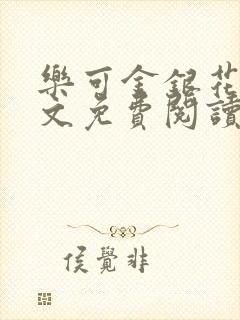 樂可金銀花
文免費閱讀
侯覺非